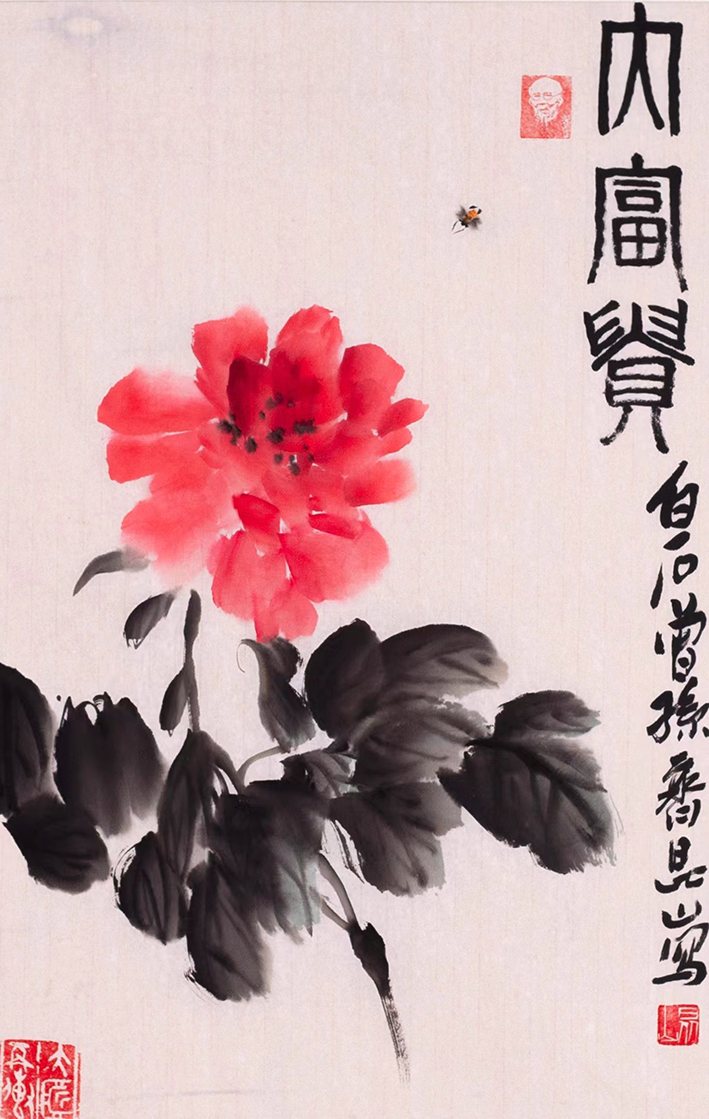 大富貴
白石曾孫齊昆山寫